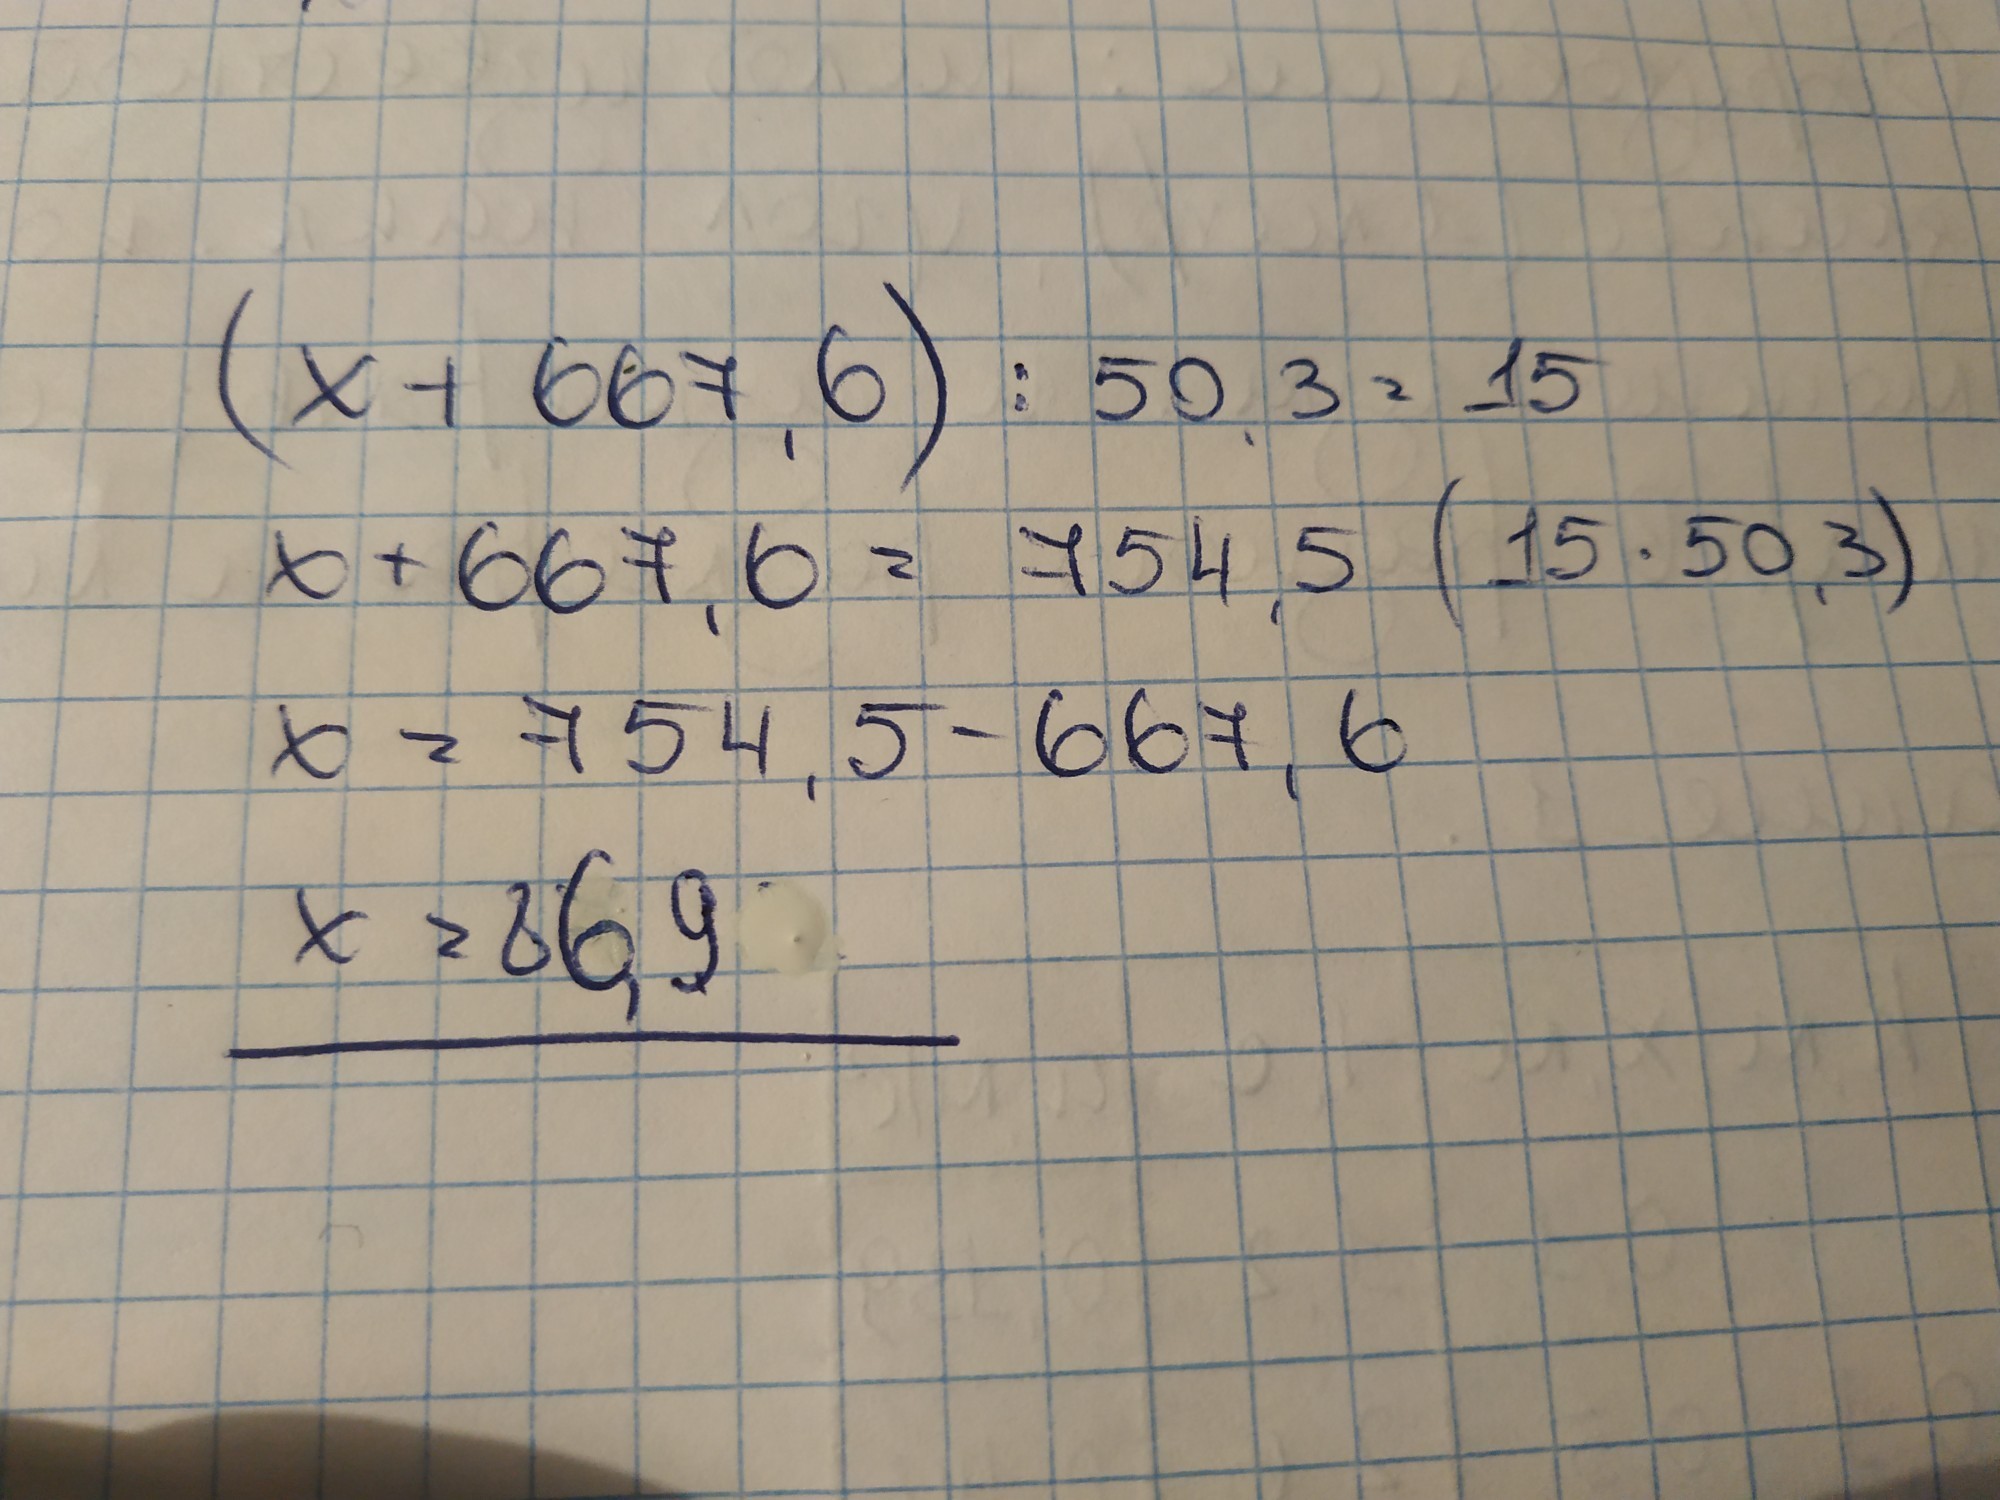 (x + 667,6) : 50,3 = 15
x + 667,6 = 754,5 (15 · 50,3)
x = 754,5 - 667,6
x = 86,9